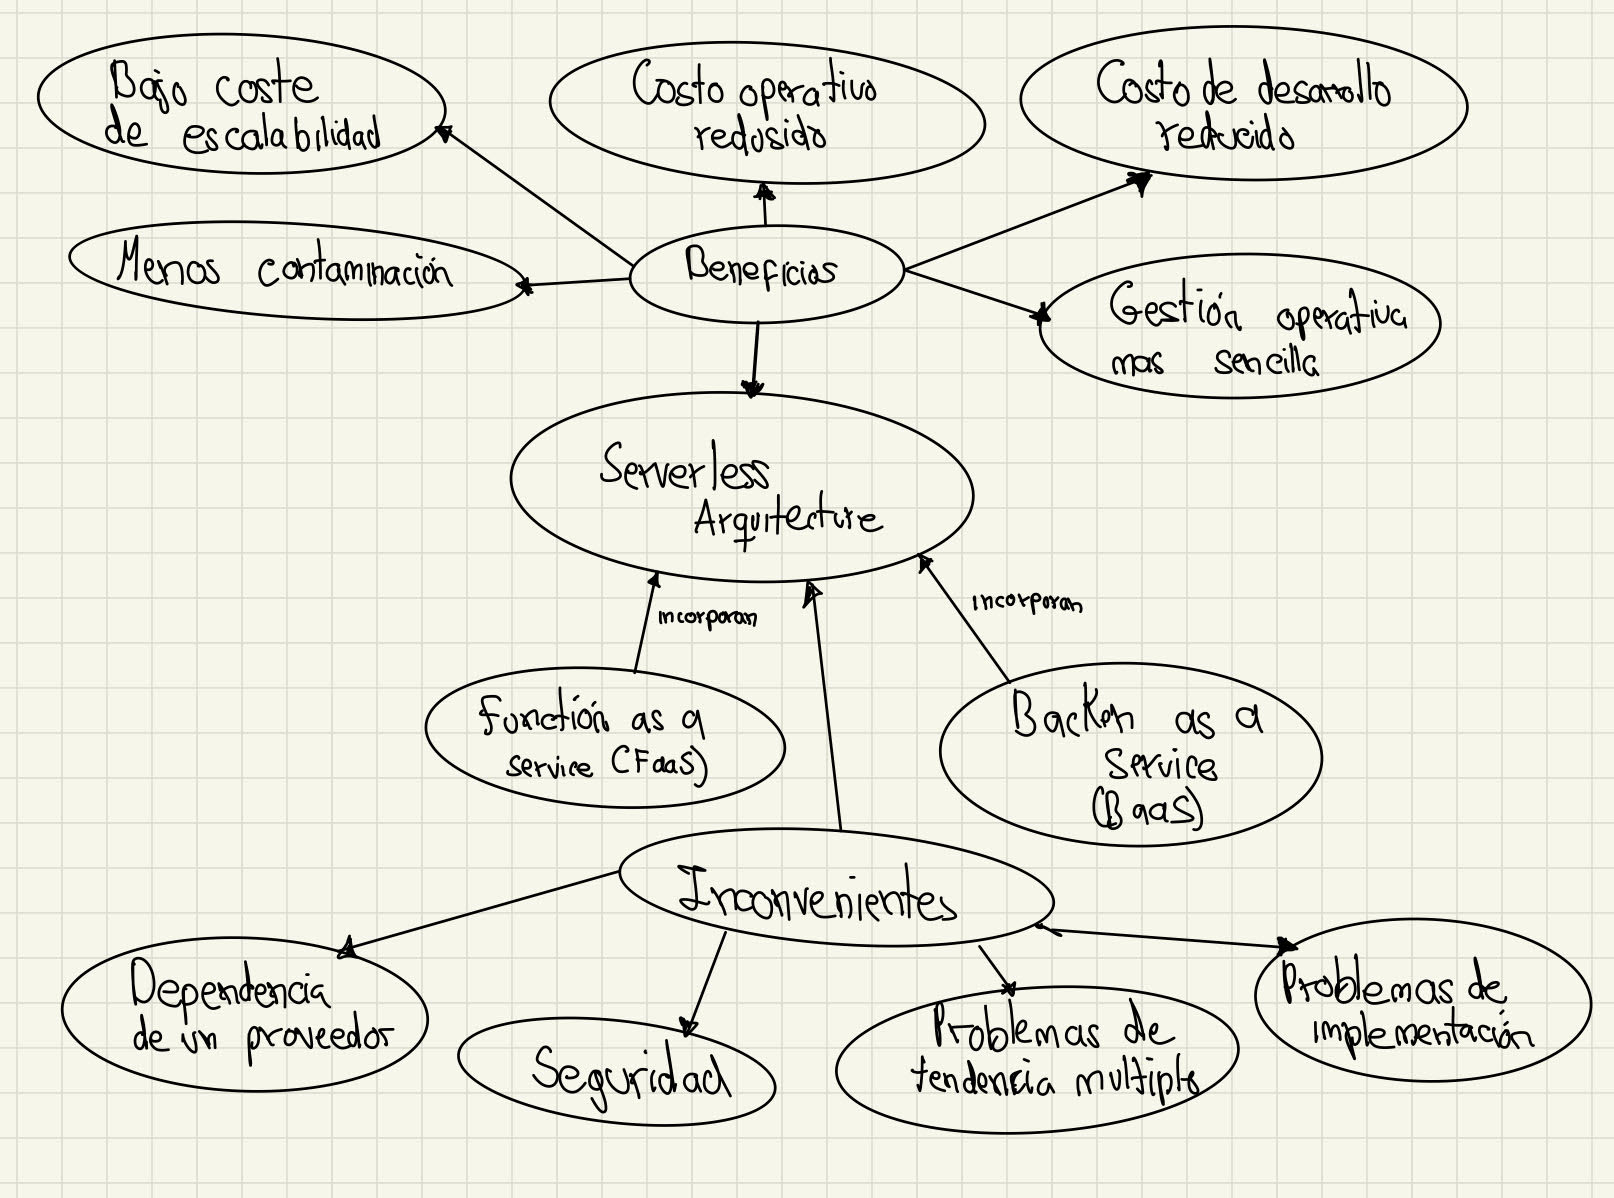 Bajo coste
de escalabilidad
Costo operativo
redusido
Costo de desarrollo
reducido
Menos contaminación
Beneficios
Gestión operativa
mas sencilla
Serverless
Arquitecture
incorporan
incorporan
Functión as a
service (FaaS)
Backen as a
Service
(BaaS)
Inconvenientes
Dependencia
de un proveedor
Seguridad
Problemas de
tendencia multiple
Problemas de
implementación